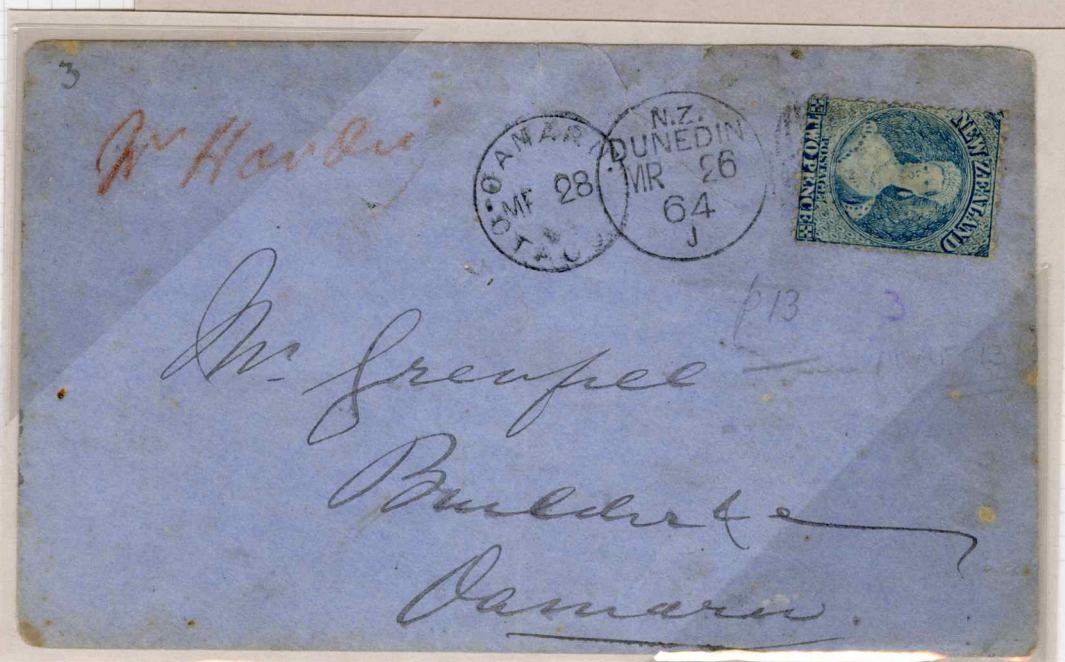 3
Mr Hardy
OAMARU
MR 28
OTAGO
N.Z.
DUNEDIN
MR 26
64
J
NEW ZEALAND
POSTAGE
TWO PENCE
p 13
3
13
Mr. Grenfell
Builder &c
Oamaru.